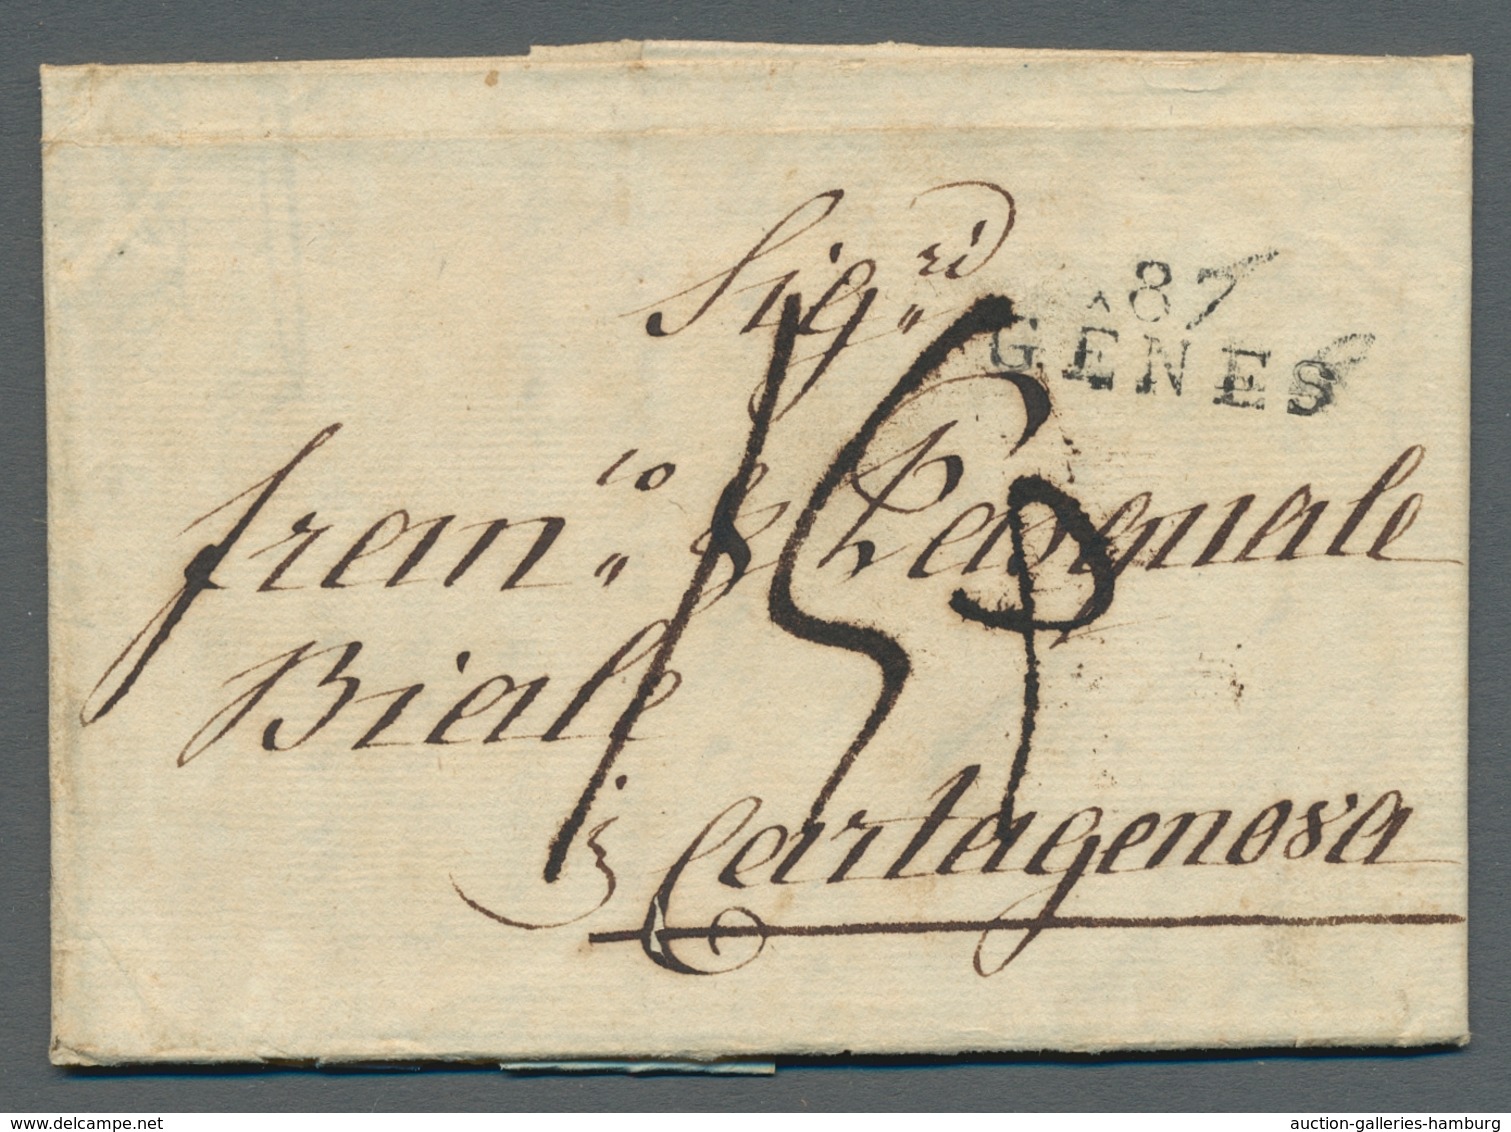 Sig.ri
87
GENES
15 P
fran.co & Pasquale
Biale
Cartagenova
www.delcampe.net
auction-galleries-hamburg